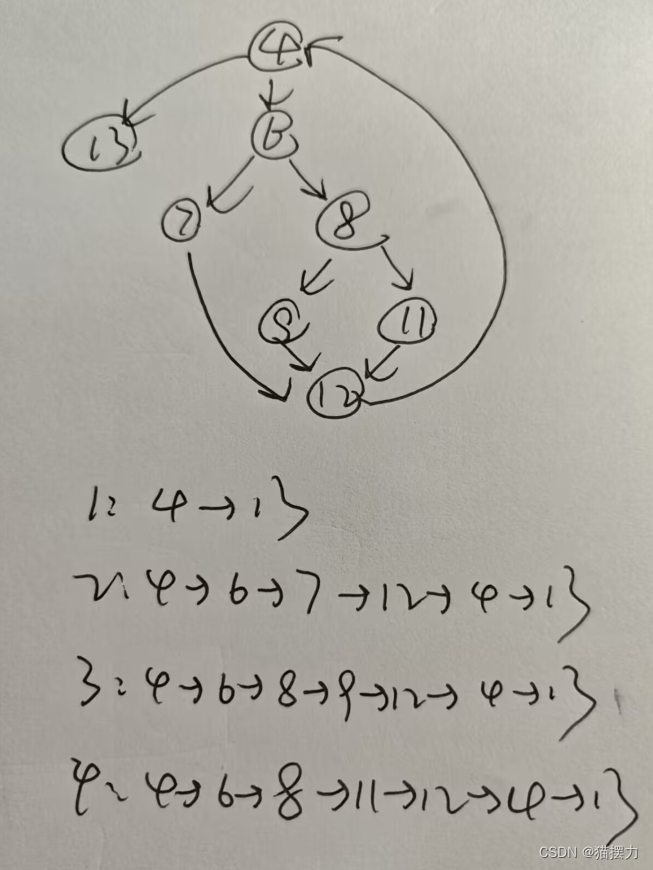 4
13
6
7
8
9
11
12
1: 4→13
2: 4→6→7→12→4→13
3: 4→6→8→9→12→4→13
4: 4→6→8→11→12→4→13
CSDN @猫摆力